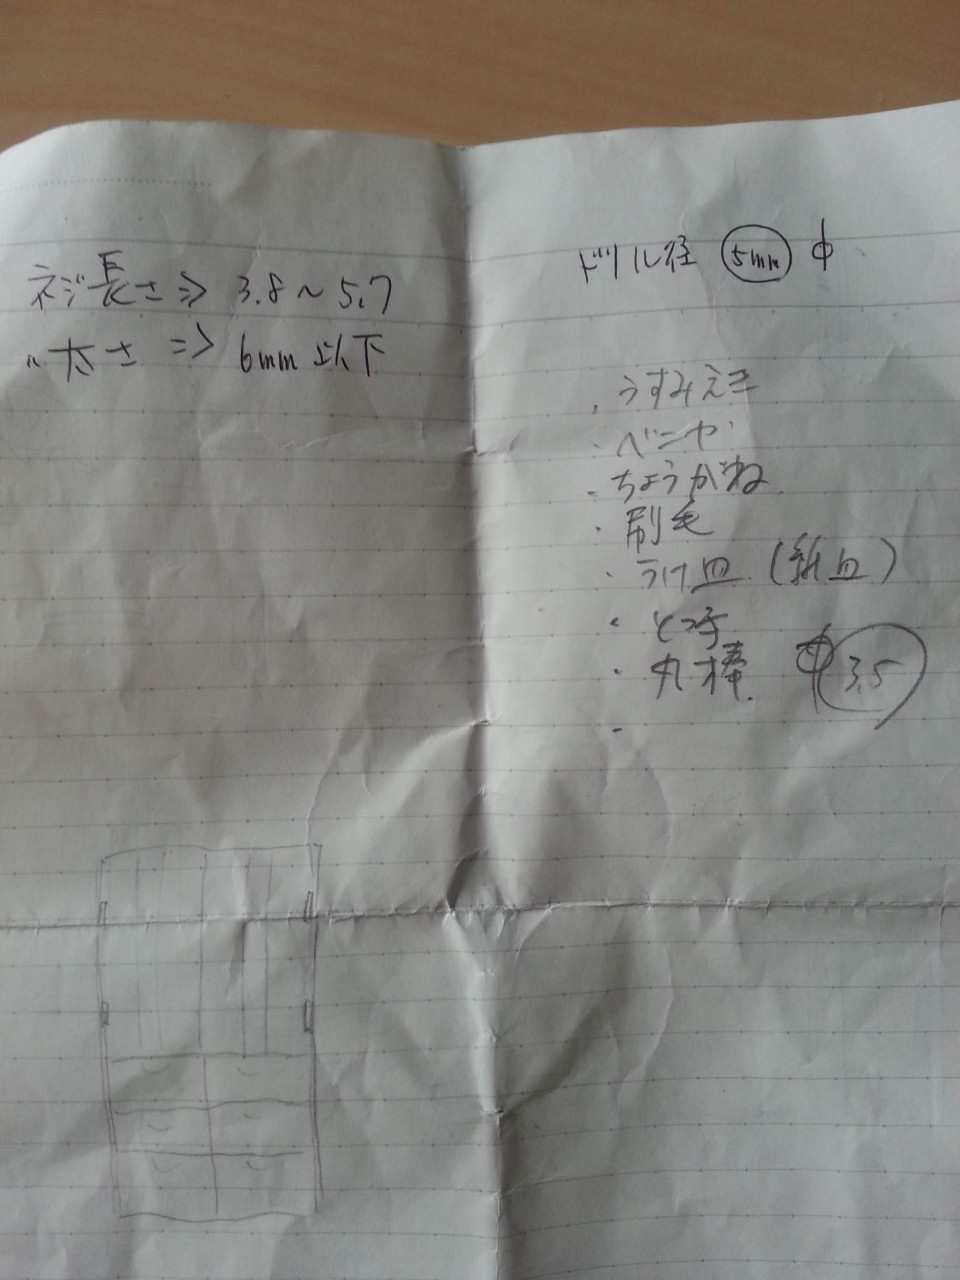 ネジ長さ⇒ 3.8～5.7
〃太さ ⇒ 6mm以下
ドリル径 5mm φ
・ベニヤ
・ちょうがね
・刷毛
・うけ皿 (紙皿)
・とっ手
・丸棒 φ3.5